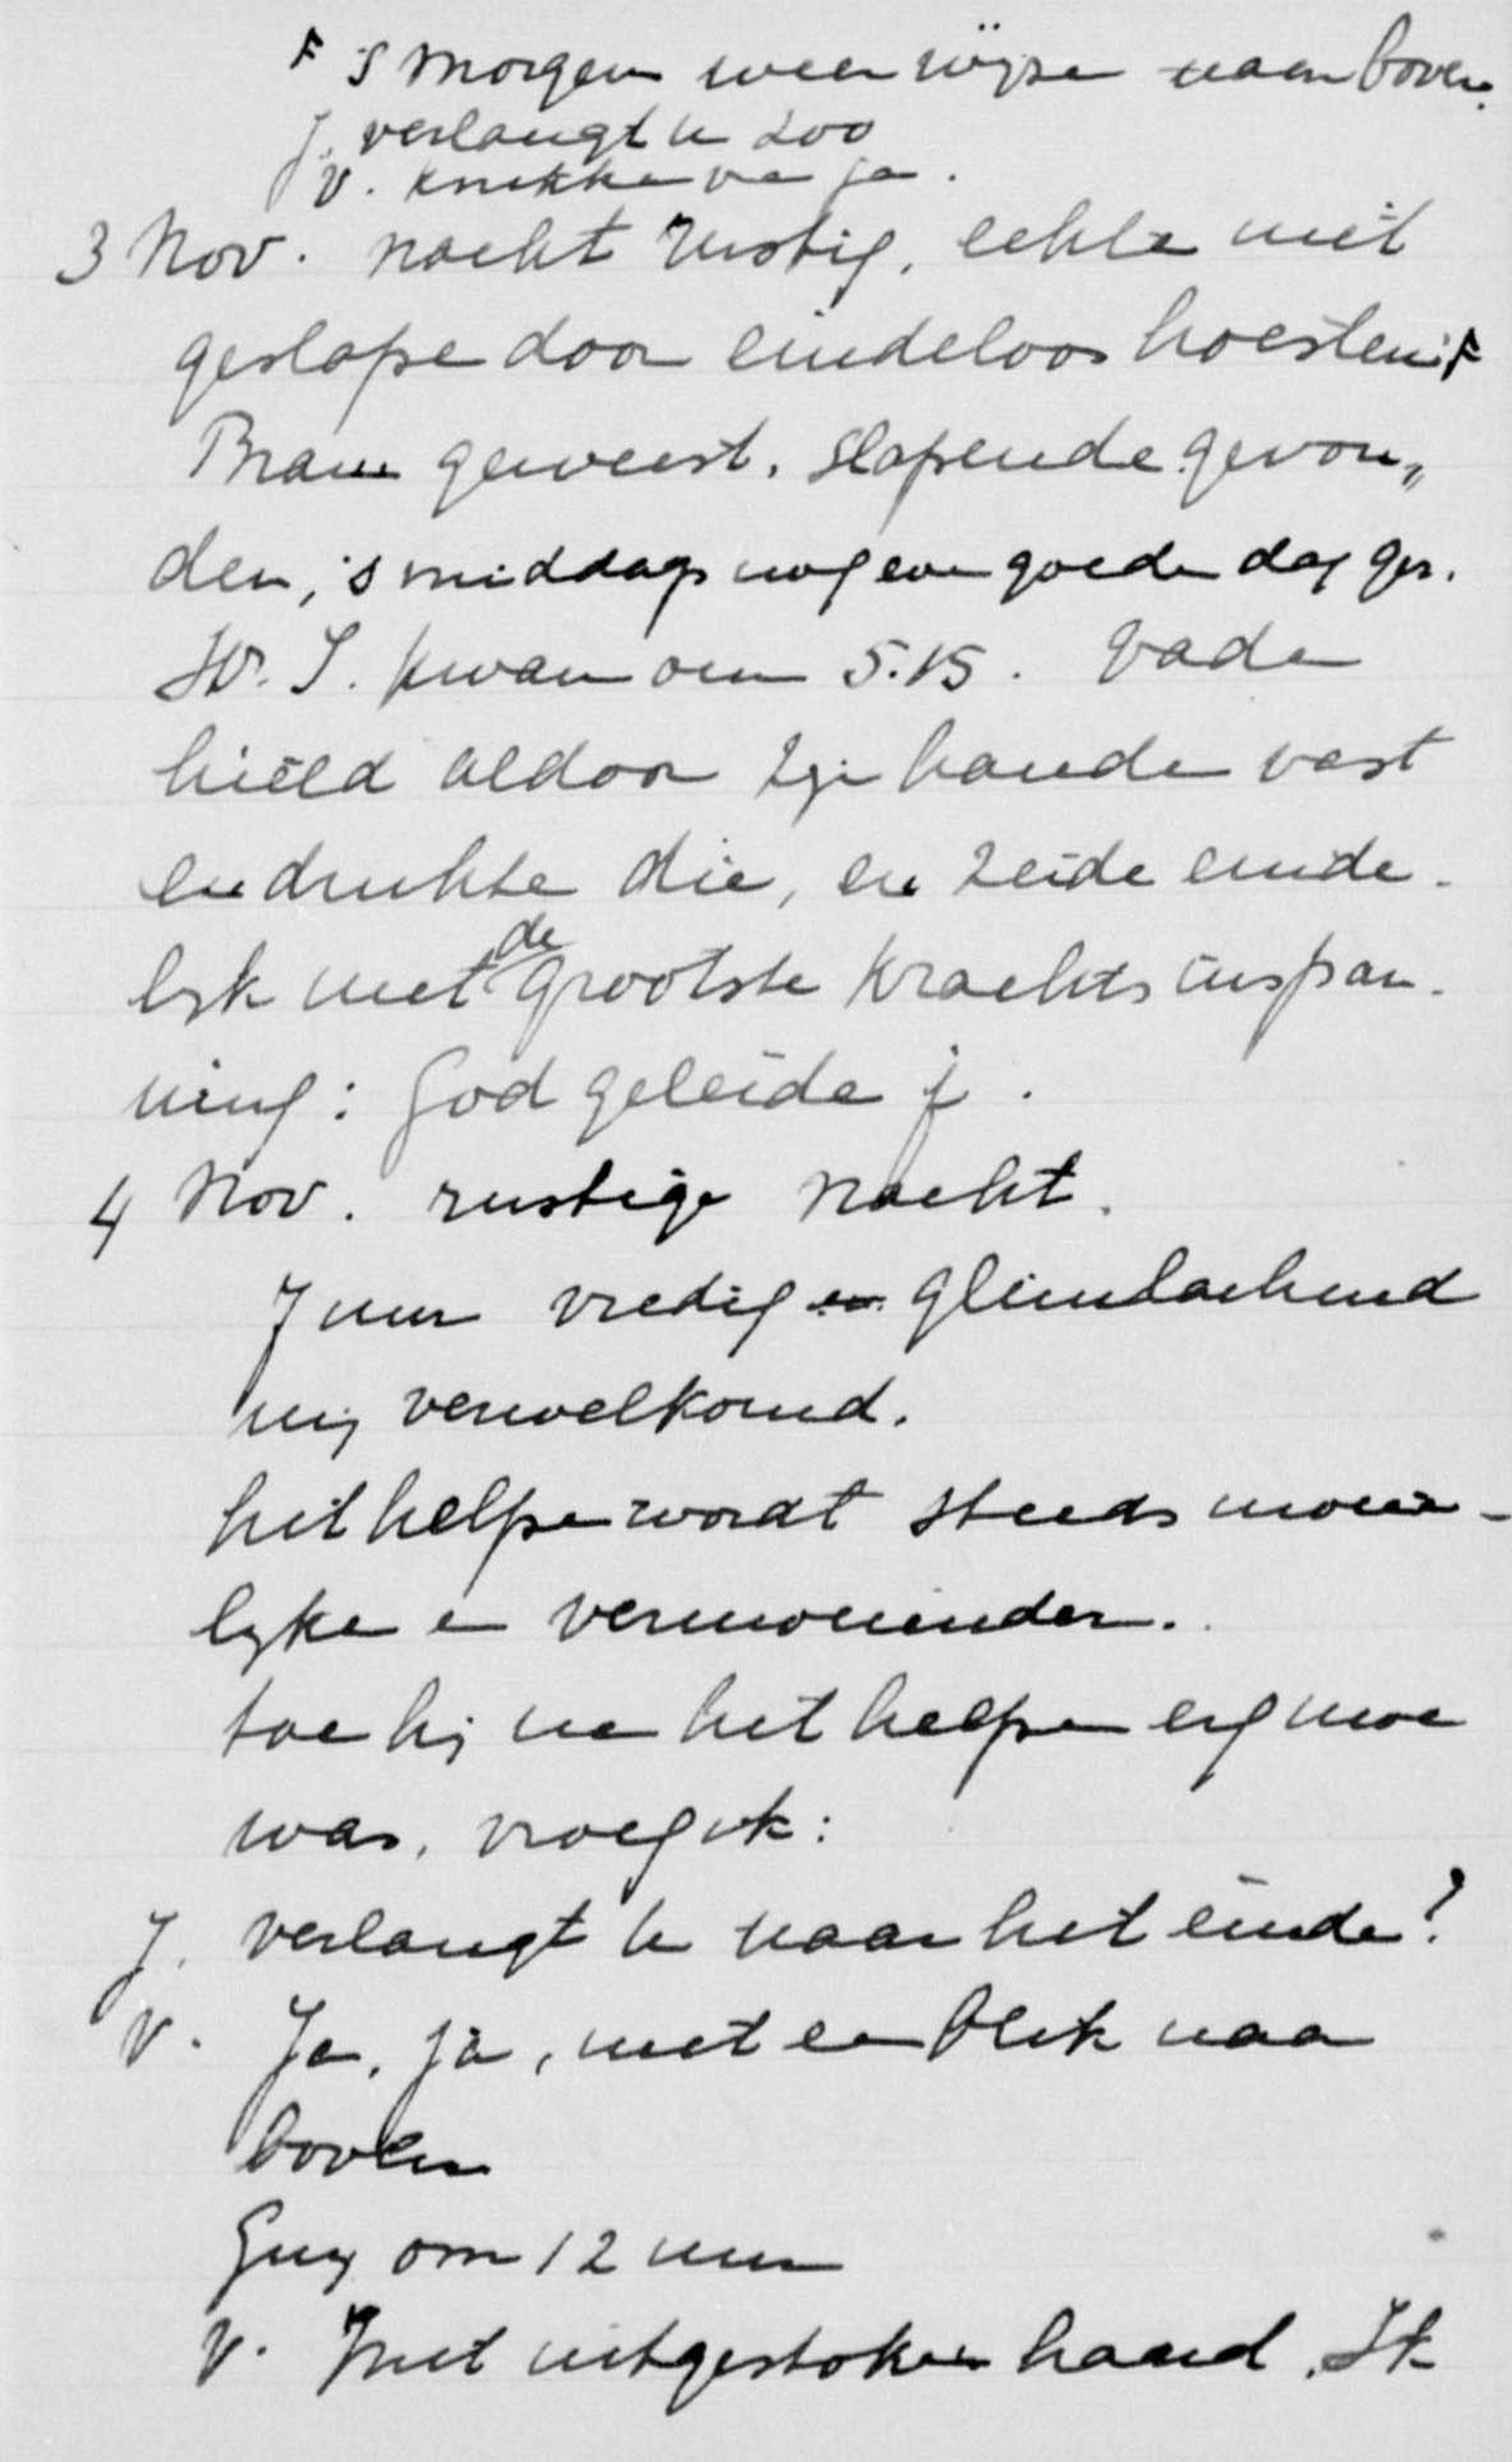 F 's morgen weer wijze naar boven.
J. verlangt u zoo
V. knikke va ja.
3 Nov. nacht rustig, echte niet
geslape door eindeloos hoesten F
Bram geweest, slapende gevon„
den, 's middags nog een goede dag gez.
W. S. kwam om 5.15. Vader
hield aldoor zijn hande vast
en drukte die, en zeide einde-
lijk met de grootste krachtsinspan-
ning: God geleide j.
4 Nov. rustige nacht.
7 uur vredig en glimlachend
mij verwelkomd.
het helpe wordt steeds moei-
lijke en vermoeiender.
toe hij na het helpe erg moe
was, vroeg ik:
J. verlangt u naar het einde?
V. Ja, ja, met een blik naar
boven
Guy om 12 uur
V. met uitgestoken hand. Ik